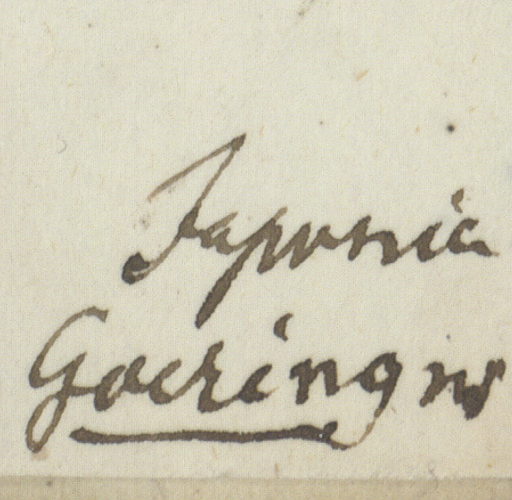 Japonia
Goering